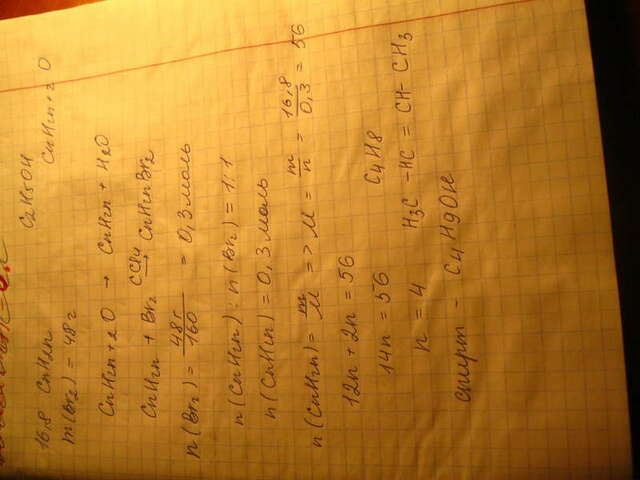 C2H5OH
16,8 CnH2n CnH2n+2O
m(Br2) = 48г
CnH2n+2O → CnH2n + H2O
CnH2n + Br2 CCl4→ CnH2nBr2
n(Br2) = 48г/160 = 0,3 моль
n(CnH2n) : n(Br2) = 1:1
n(CnH2n) = 0,3 моль
n(CnH2n) = m/M => M = m/n = 16,8/0,3 = 56
12n + 2n = 56
14n = 56 C4H8
n = 4 H3C - HC = CH - CH3
спирт - C4H9OH